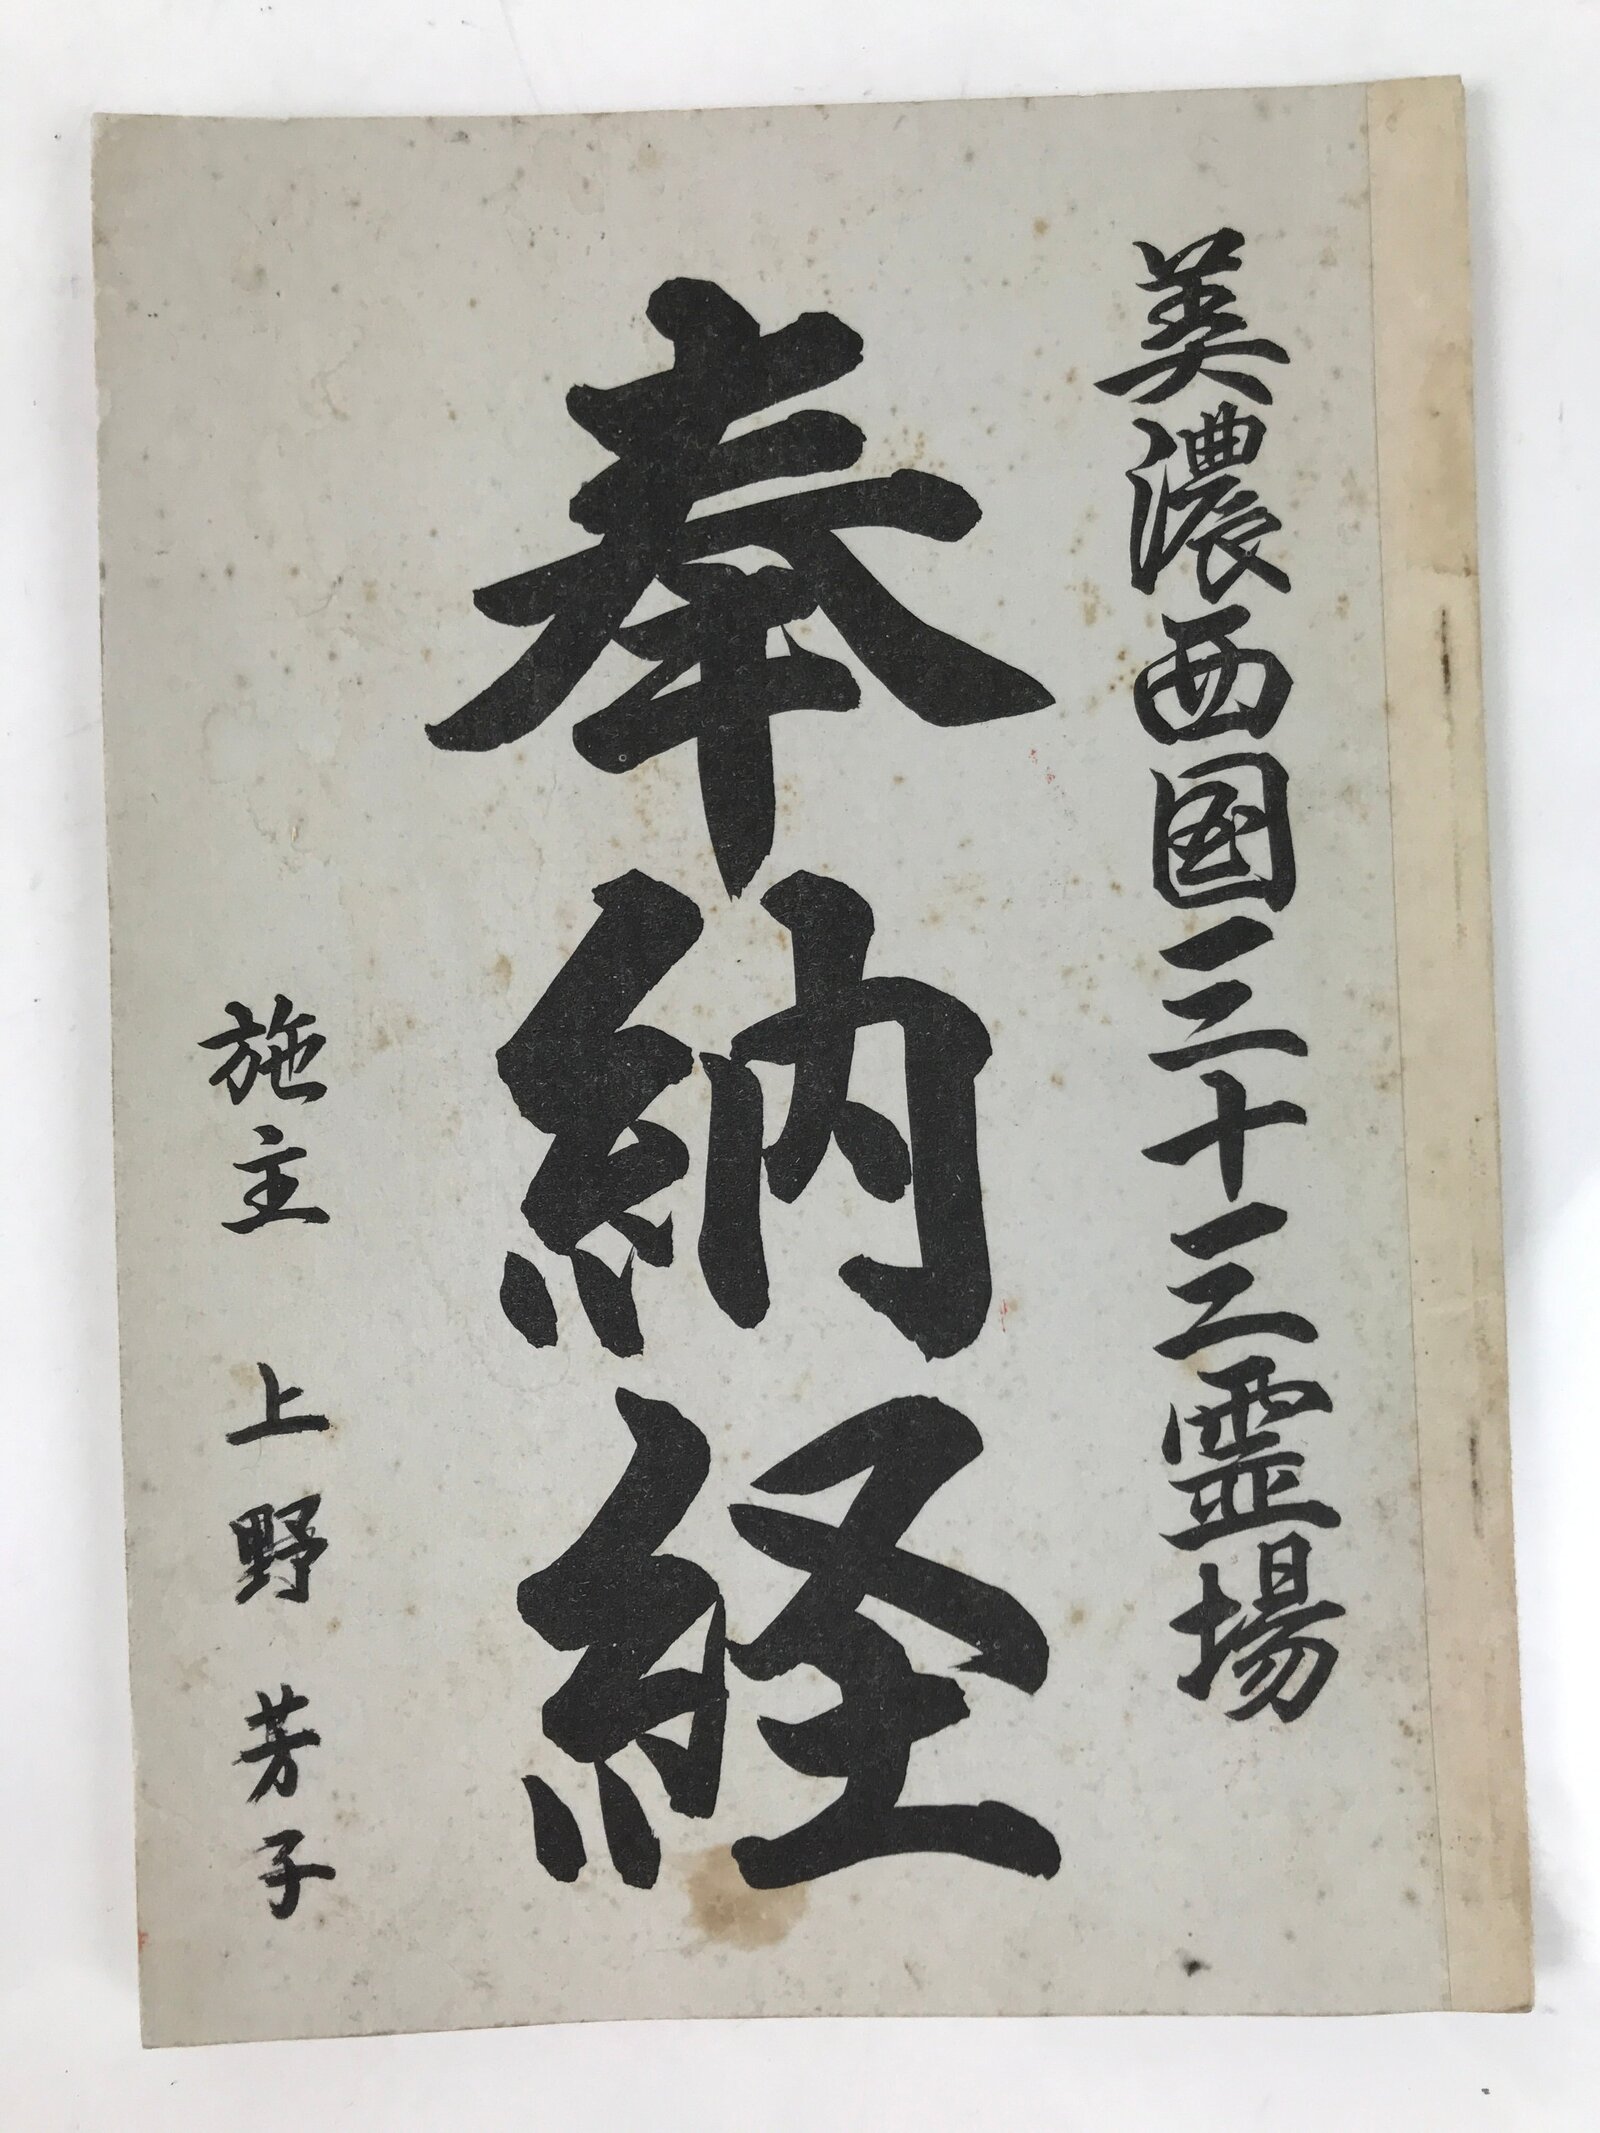 美濃西国三十三霊場
奉納経
施主 上野芳子